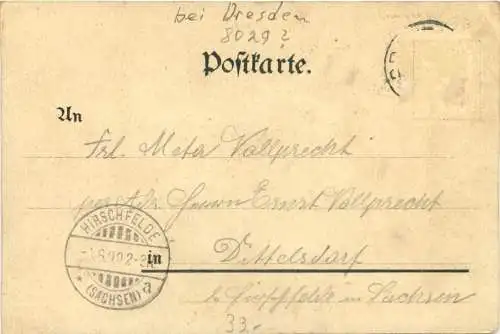 bei Dresden
8029?
Postkarte.
An
Frl. Meta Vollprecht
per Adr. Herrn Ernst Vollprecht
in Dittelsdorf
b. Hirschfelde in Sachsen
HIRSCHFELDE
(SACHSEN) a
33.-